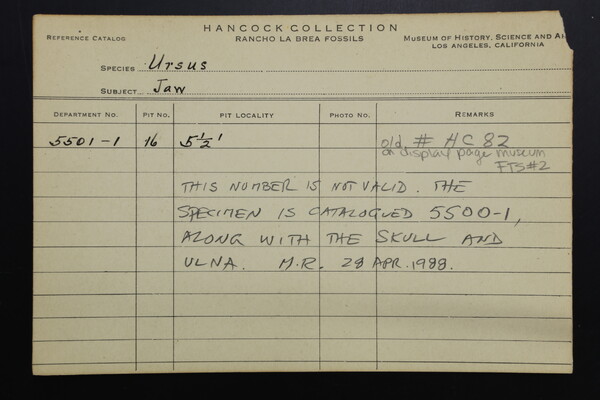 HANCOCK COLLECTION
REFERENCE CATALOG RANCHO LA BREA FOSSILS MUSEUM OF HISTORY, SCIENCE AND
LOS ANGELES, CALIFORNIA
SPECIES Ursus
SUBJECT Jaw
DEPARTMENT NO. PIT NO. PIT LOCALITY PHOTO NO. REMARKS
5501-1 16 5½' old # HC 82
on display page museum
FTS#2
THIS NUMBER IS NOT VALID. THE
SPECIMEN IS CATALOGUED 5500-1,
ALONG WITH THE SKULL AND
ULNA. M.R. 28 APR. 1988.